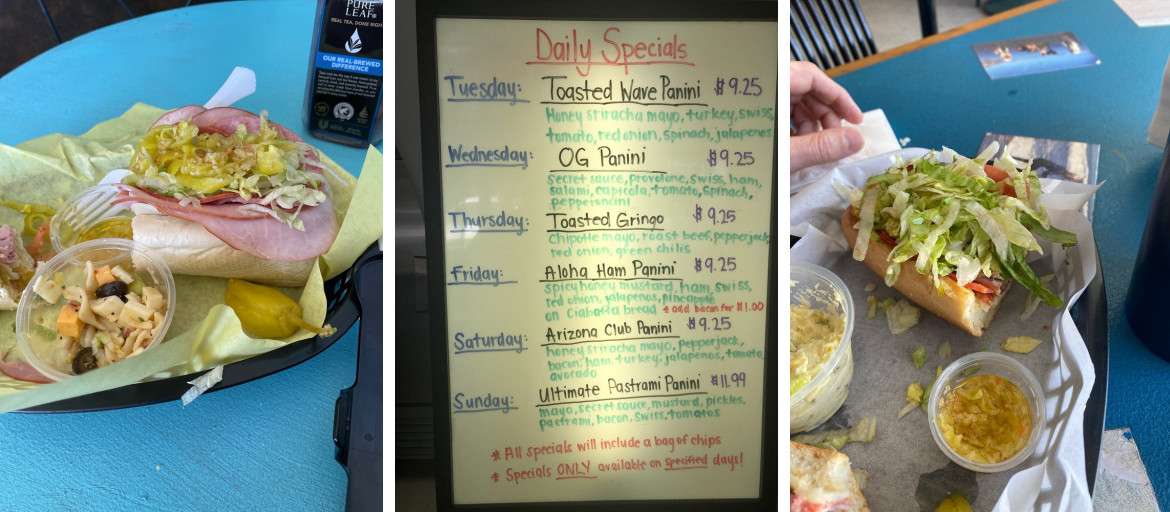 PURE
LEAF
REAL TEA, DONE RIGHT
OUR REAL-BREWED
DIFFERENCE
Daily Specials
Tuesday: Toasted Wave Panini $9.25
Honey sriracha mayo, turkey, swiss,
tomato, red onion, spinach, jalapenos
Wednesday: OG Panini $9.25
secret sauce, provolone, swiss, ham,
salami, capicola, tomato, spinach,
pepperoncini
Thursday: Toasted Gringo $9.25
Chipotle mayo, roast beef, pepperjack,
red onion, green chilis
Friday: Aloha Ham Panini $9.25
spicy honey mustard, ham, swiss,
red onion, jalapenos, pineapple
on Ciabatta bread * add bacon for $1.00
Saturday: Arizona Club Panini $9.25
honey sriracha mayo, pepperjack,
bacon, ham, turkey, jalapenos, tomato,
avocado
Sunday: Ultimate Pastrami Panini $11.99
mayo, secret sauce, mustard, pickles,
pastrami, bacon, swiss, tomatos
* All specials will include a bag of chips
* Specials ONLY available on specified days!